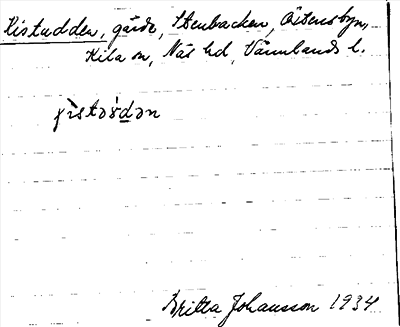 Ristudden, gärde, Stenbacken, Östensbyn,
Kila sn, Näs hd, Värmlands l.
rìstəɤ́dən
Britta Johansson 1934